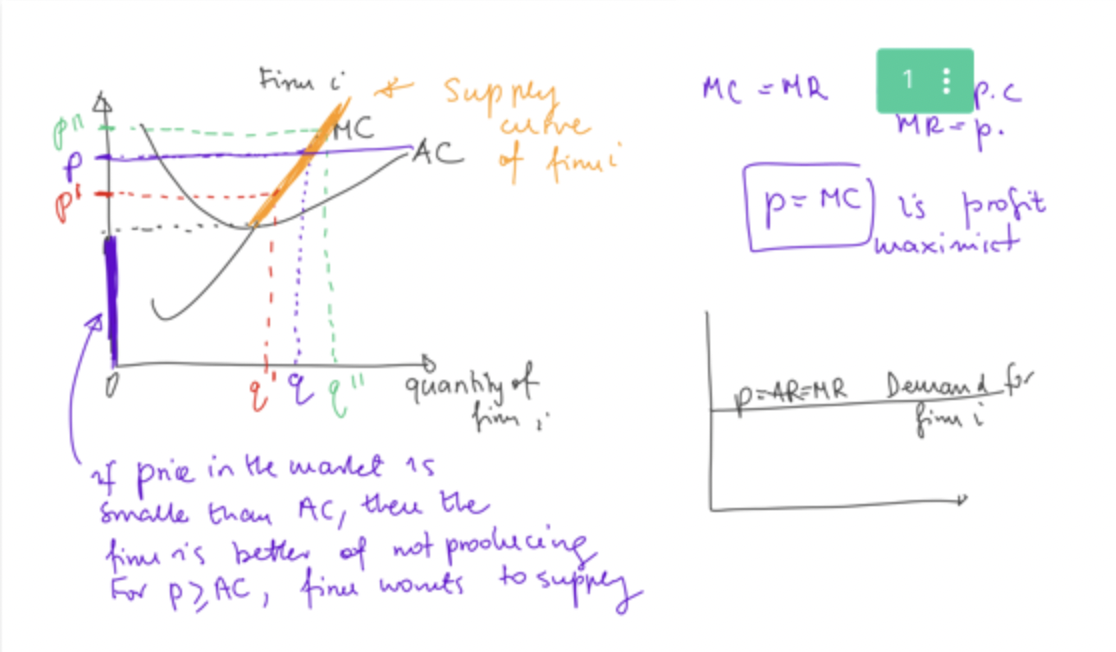 Firm i
p''
p
p'
MC
AC
← Supply
curve
of firm i
0
q' q q''
quantity of
firm i
if price in the market is
smalle than AC, then the
firm is better of not producing
For p ≥ AC, firm wants to supply
MC = MR
1
p.c
MR = p.
p = MC is profit
p=AR=MR Demand for
firm i